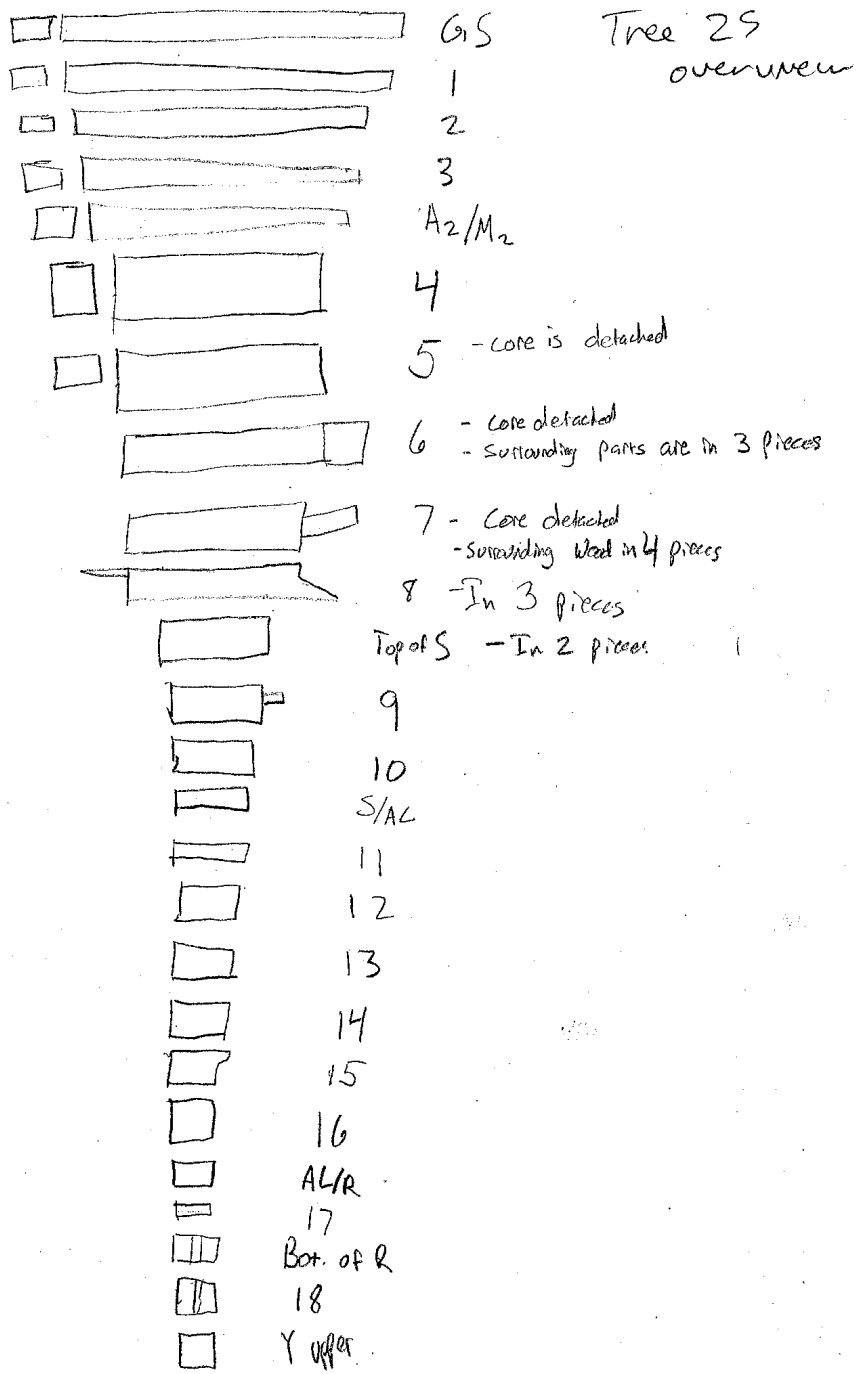 GS Tree 25
overview
1
2
3
A2/M2
4
5 - core is detached
6 - Core detached
- Surrounding parts are in 3 pieces
7 - Core detached
- Surrounding Wood in 4 pieces
8 - In 3 pieces
Top of S - In 2 pieces
9
10
S/AL
11
12
13
14
15
16
AL/R
17
Bot. of R
18
Y upper